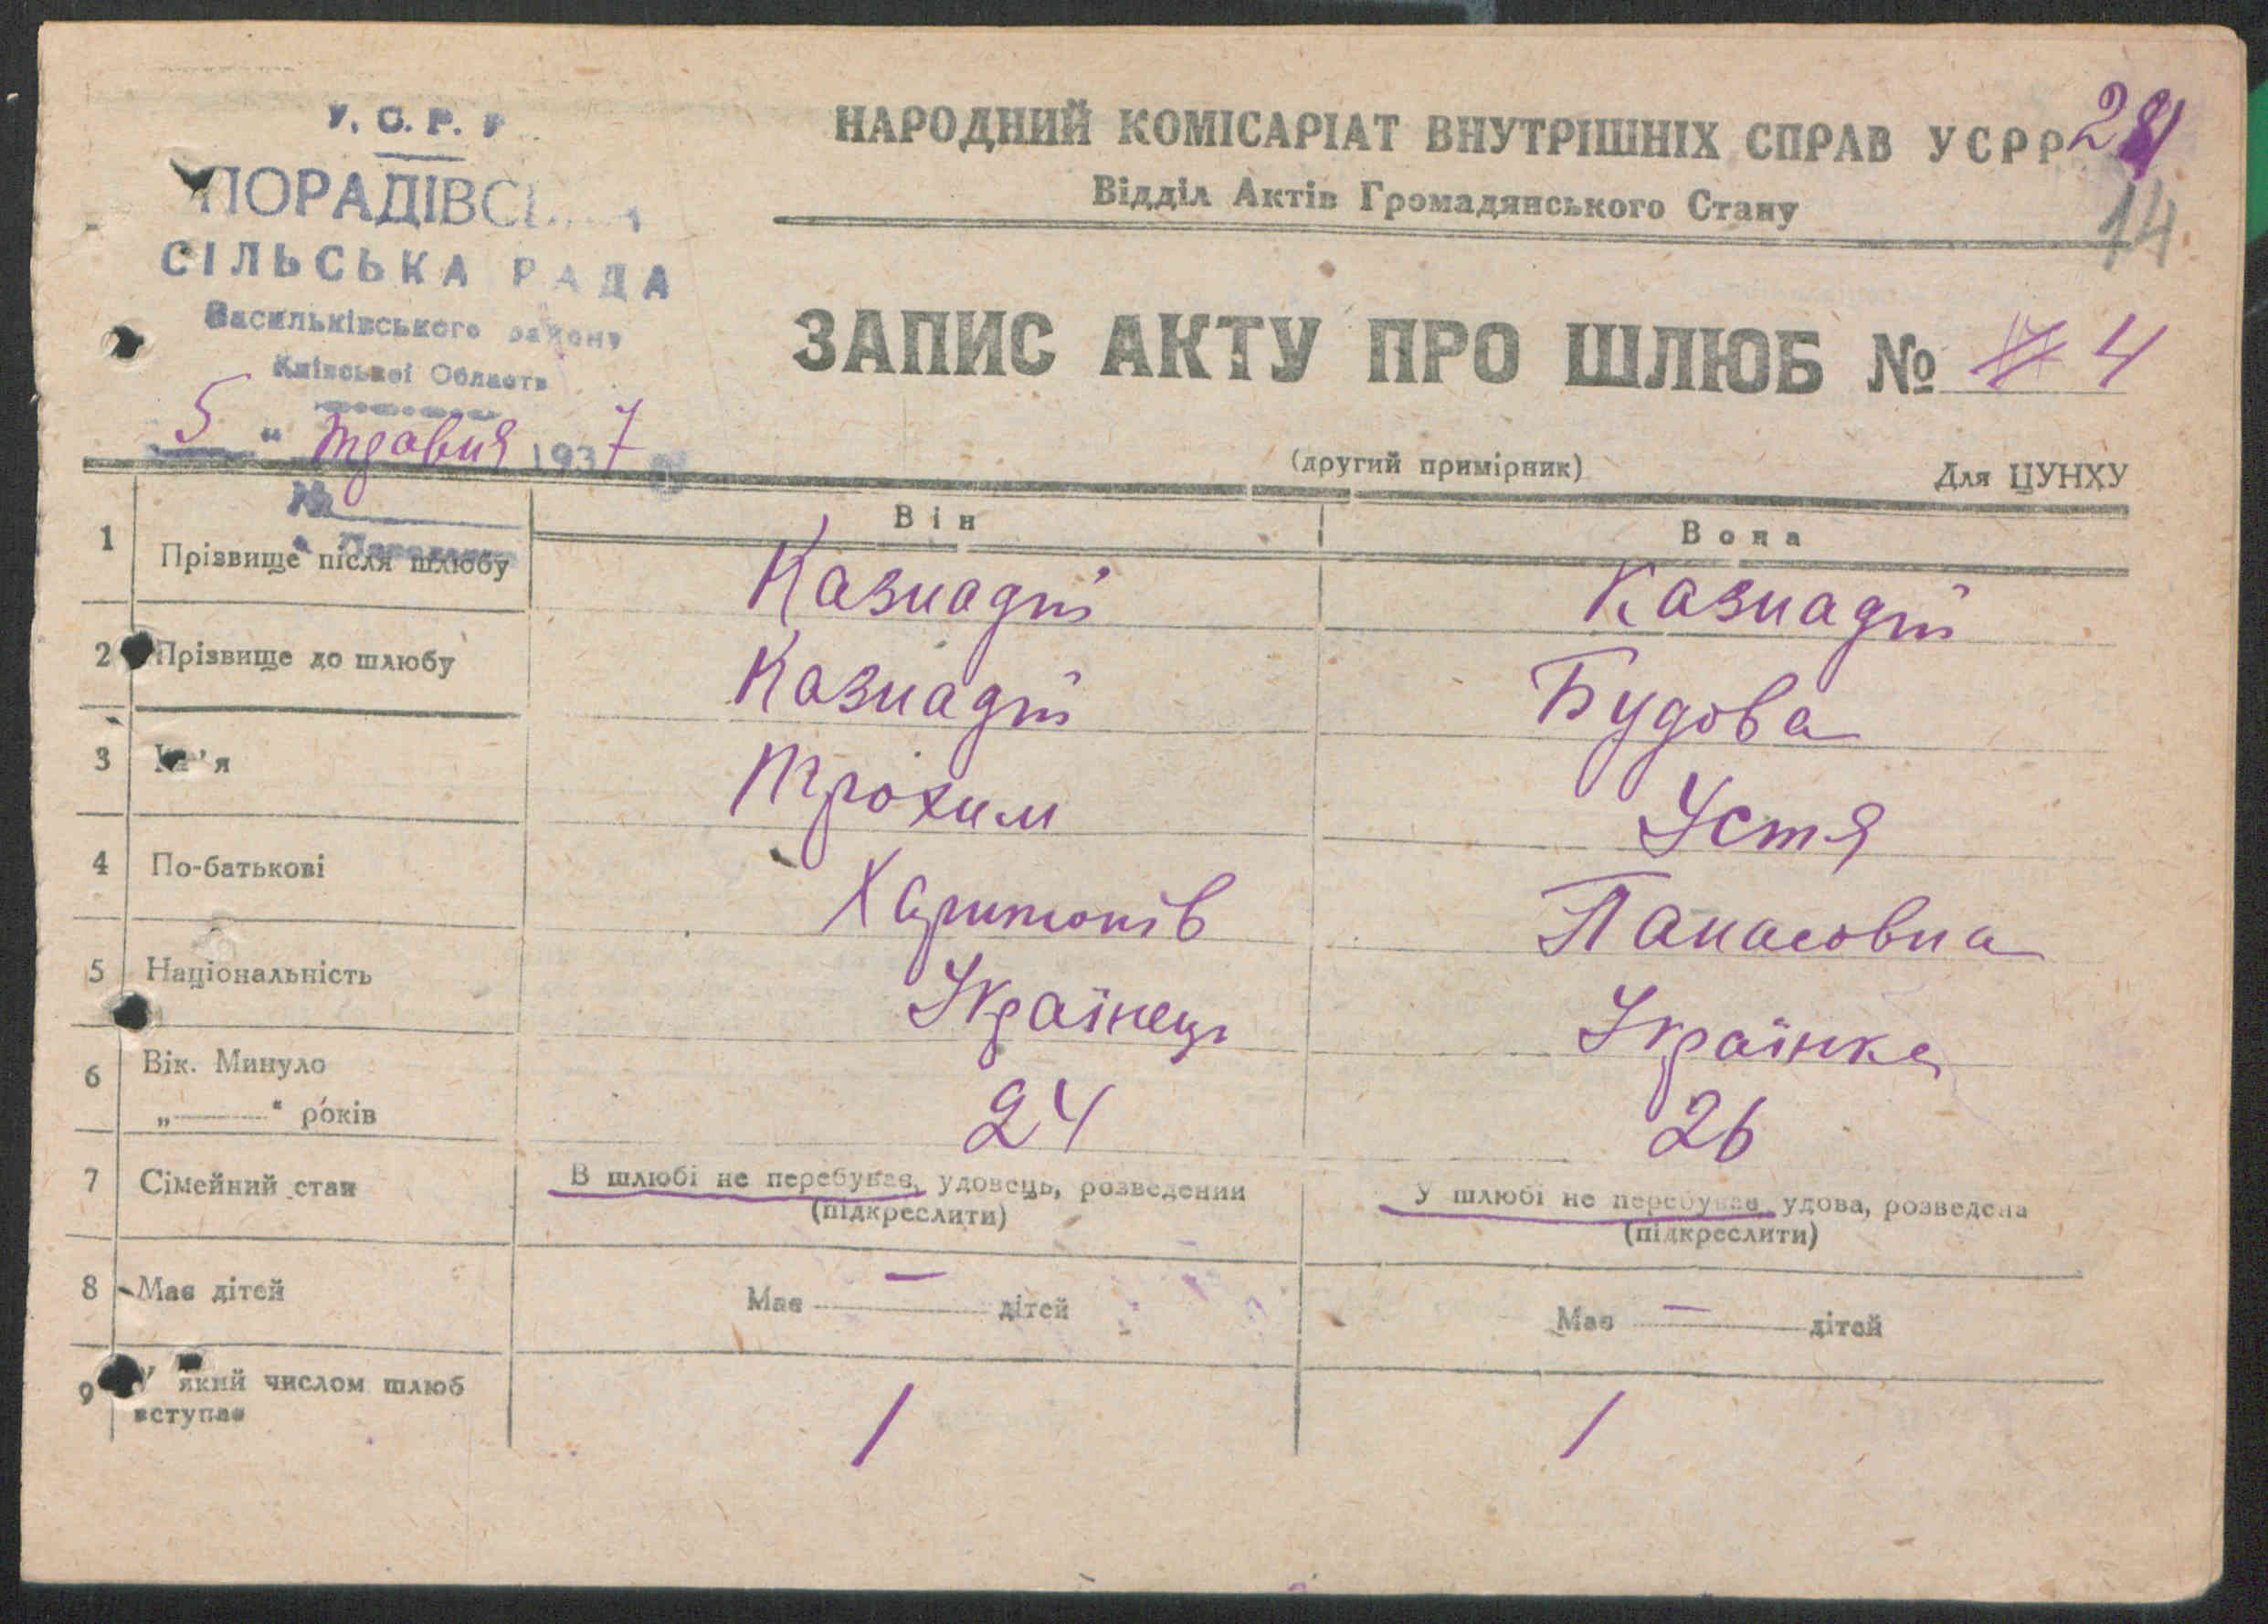 У. С. Р. Р
ПОРАДІВСЬКА
СІЛЬСЬКА РАДА
Васильківського району
Київської Области
5 " травня 1937
№
НАРОДНИЙ КОМІСАРІАТ ВНУТРІШНІХ СПРАВ УСРР
Відділ Актів Громадянського Стану
14
ЗАПИС АКТУ ПРО ШЛЮБ № 4
(другий примірник)
Для ЦУНХУ
Він Вона
1 Прізвище після шлюбу Казнадій Казнадій
2 Прізвище до шлюбу Казнадій Будова
3 Ім'я Трохим Устя
4 По-батькові Харитонів Панасовна
5 Національність Українець Українка
6 Вік. Минуло
„ " років 24 26
7 Сімейний стан В шлюбі не перебував, удовець, розведений У шлюбі не перебував удова, розведена
(підкреслити) (підкреслити)
8 Має дітей Має — дітей Має — дітей
9 У який числом шлюб
вступає 1 1